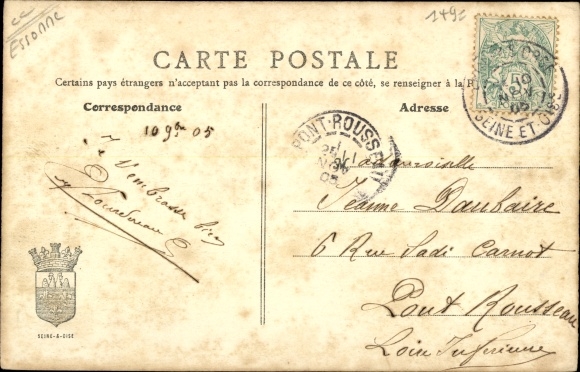 Essonne
1+9=
CARTE POSTALE
Certains pays étrangers n'acceptant pas la correspondance de ce côté, se renseigner à la
Correspondance
Adresse
10 9bre 05
PONT-ROUSSEAU
SEINE ET OISE
Je
t'embrasse bien
Mademoiselle
Jeanne Daubaire
6 Rue Sadi Carnot
Pont Rousseau
Loire Inférieure
SEINE-&-OISE